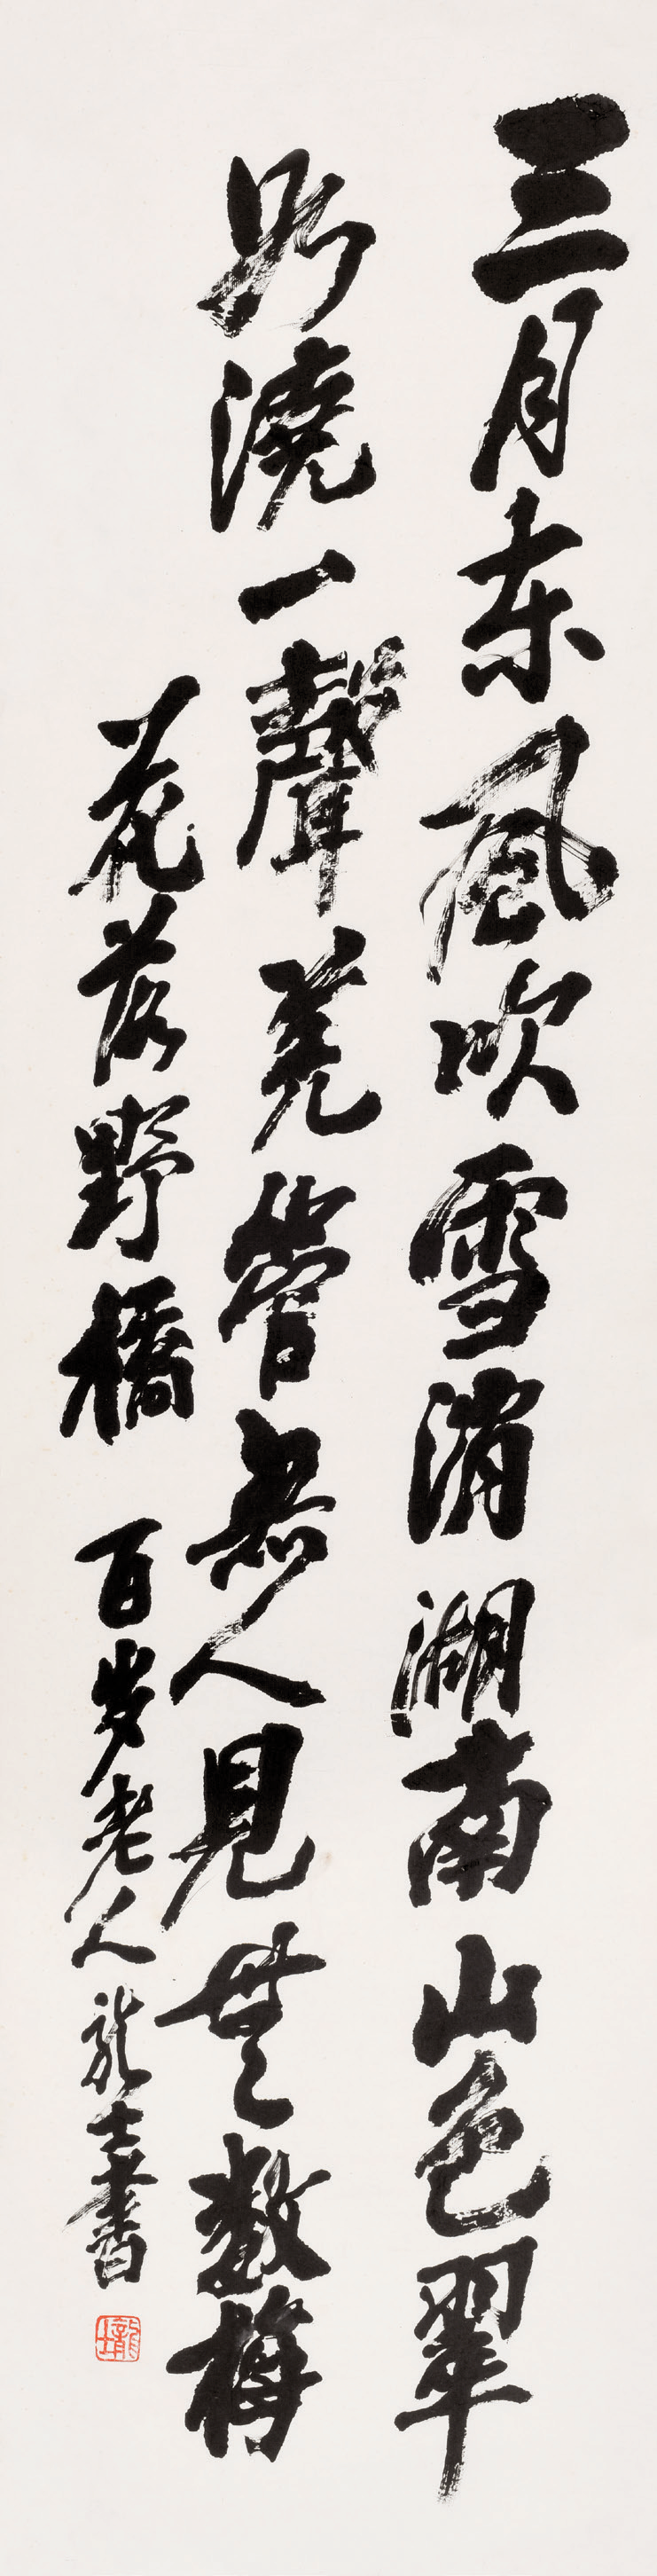 三月东風吹雪消湖南山色翠
如澆一聲羌管無人見無數梅
花落野橋 百岁老人龙士書